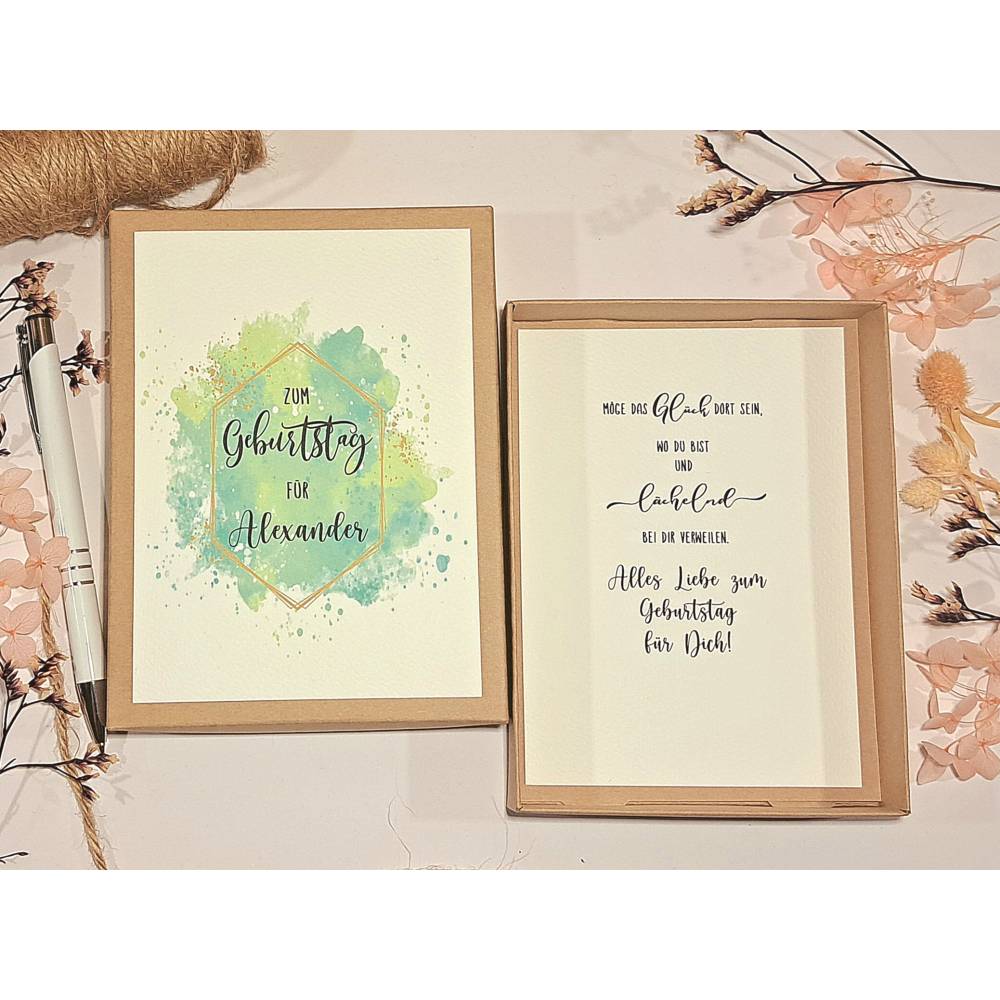 ZUM
Geburtstag
FÜR
Alexander
MÖGE DAS Glück DORT SEIN,
WO DU BIST
UND
lächelnd
BEI DIR VERWEILEN.
Alles Liebe zum
Geburtstag
für Dich!